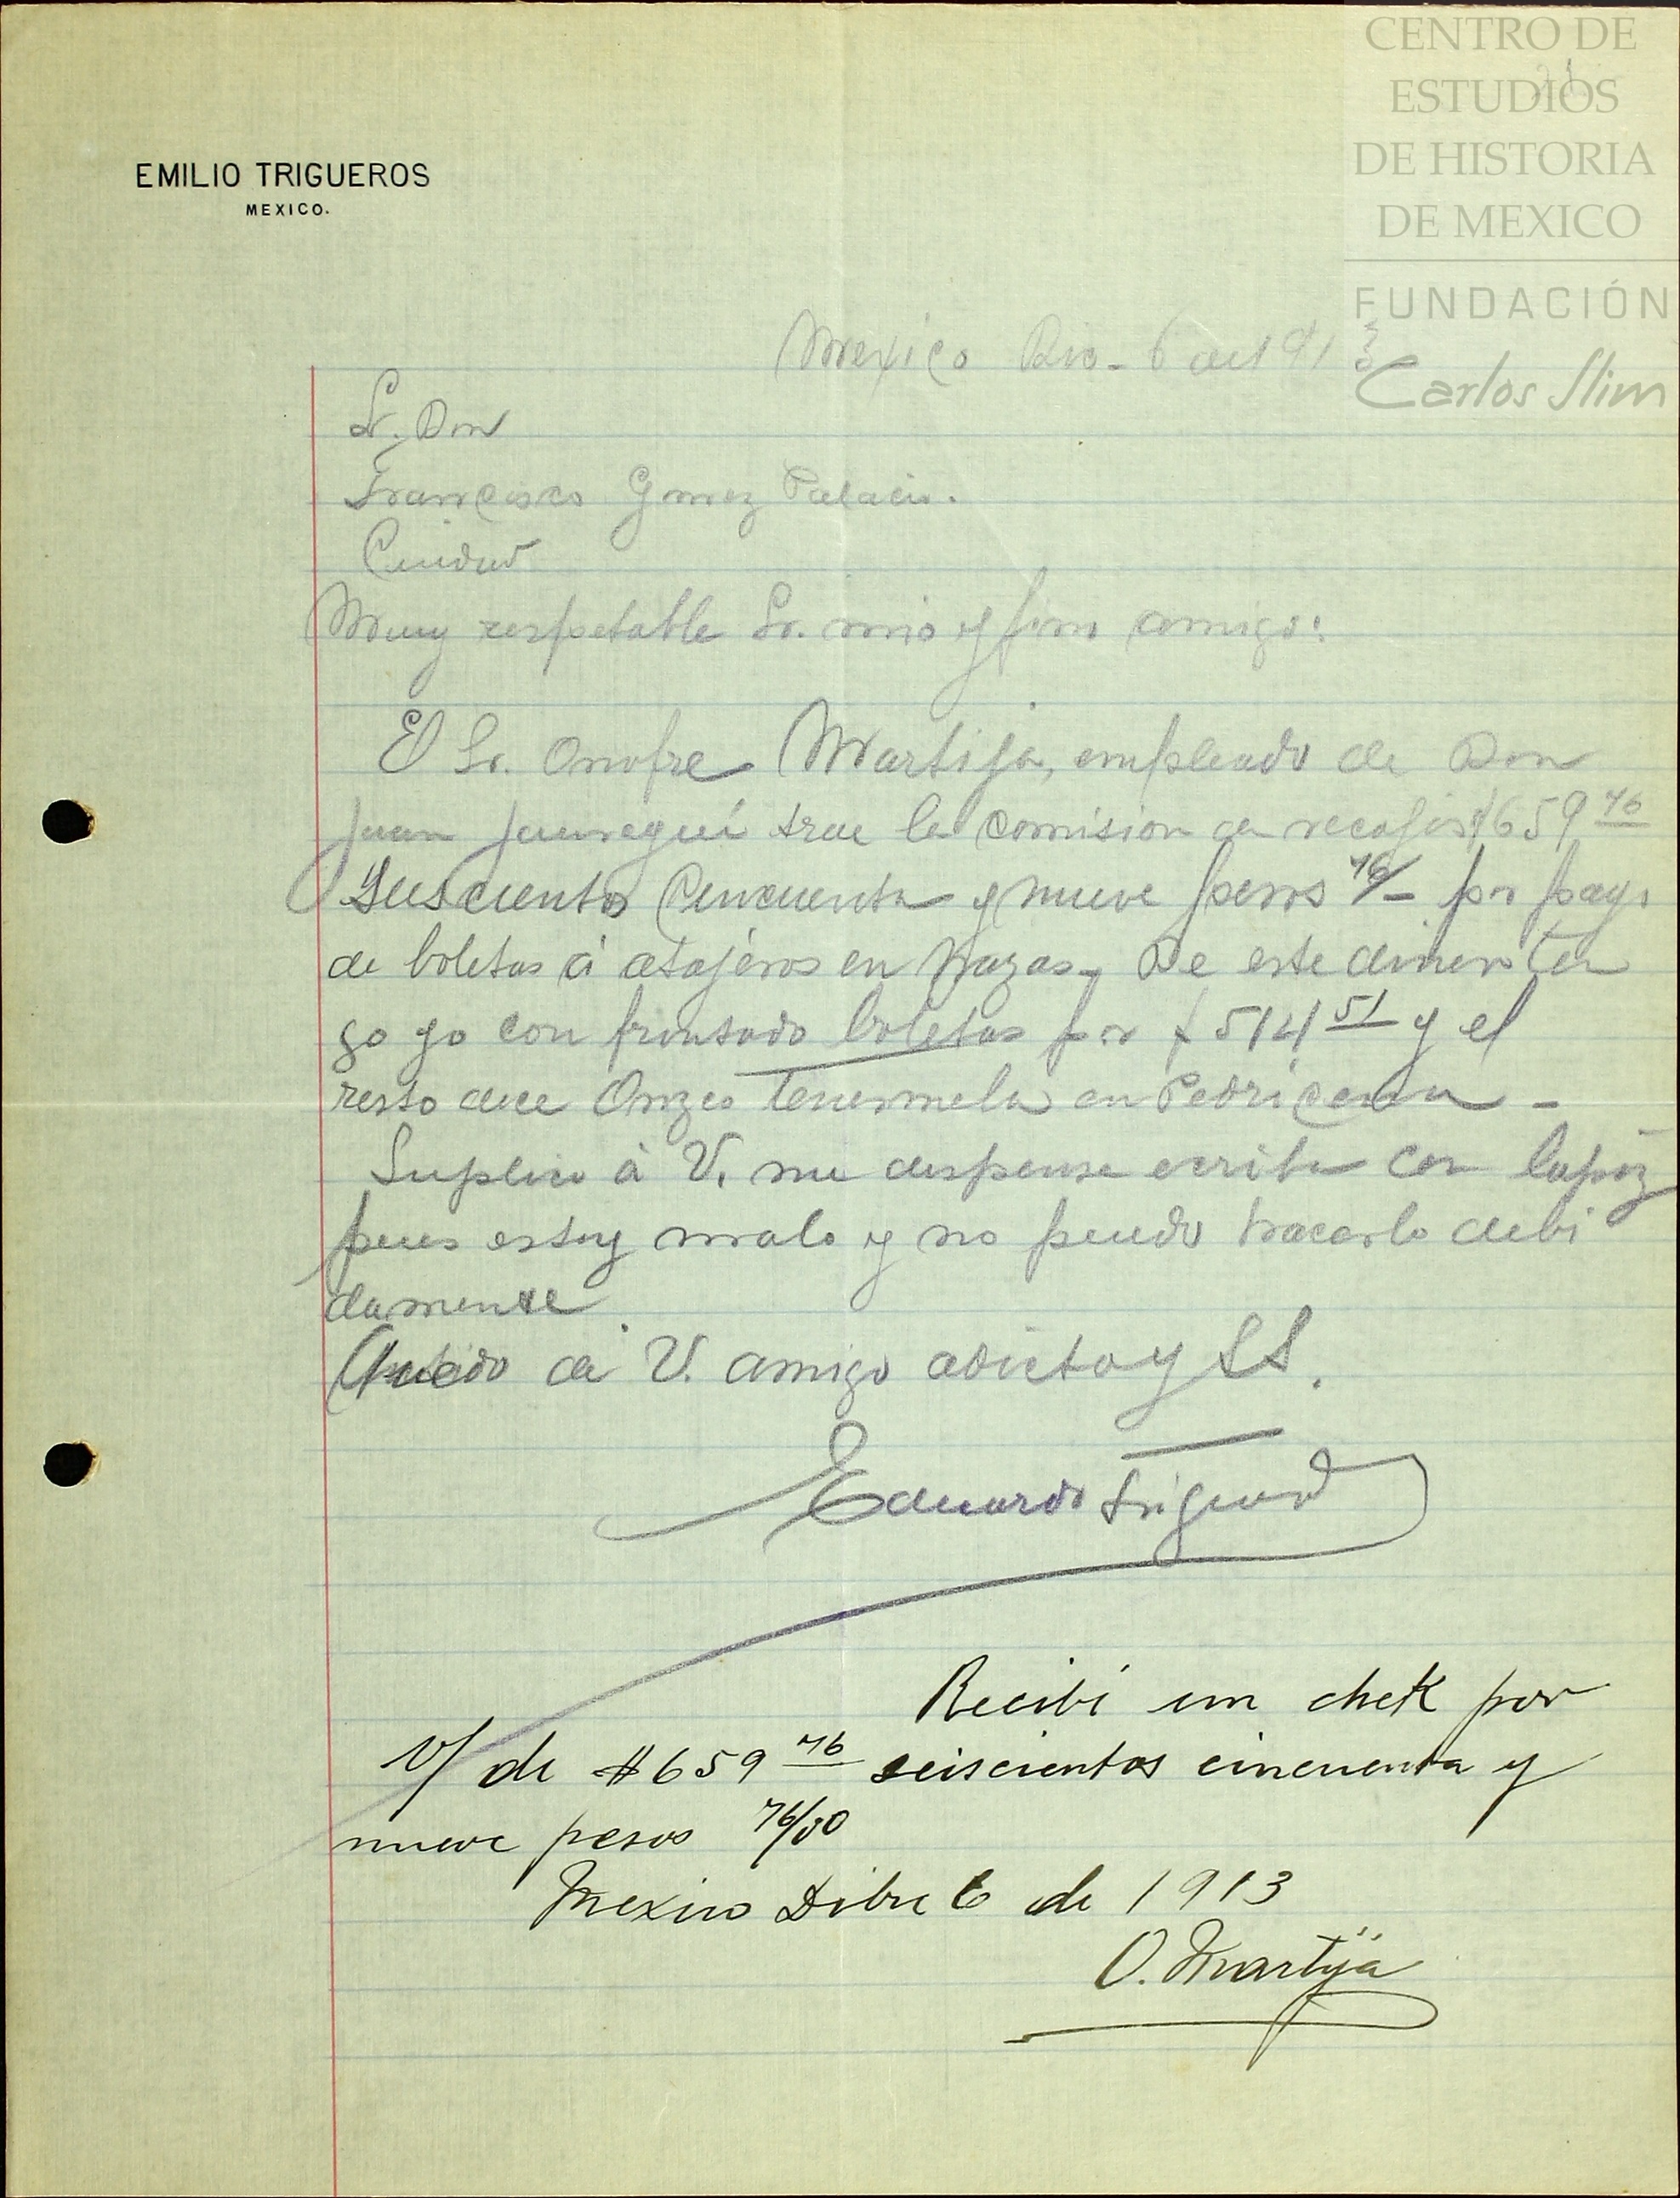 CENTRO DE
ESTUDIOS
DE HISTORIA
DE MEXICO
FUNDACIÓN
Carlos Slim
EMILIO TRIGUEROS
MEXICO.
Mexico Dic. 6 de 1913
Sr. Don
Francisco Gomez Palacio.
Ciudad
Muy respetable Sr. mio y fino amigo:
El Sr. Onofre Martija, empleado de Don
Juan Jauregui trae la comision de recojer $659 76
Seiscientos Cincuenta y nueve pesos 76/- por pago
de boletas á atajeros en Nazas. De este dinero ten
go yo con frontado boletas por $ 514 51 y el
resto dice tenermela en Pedriceña -
Suplico á V. me dispense escriba con lapiz
pues estoy malo y no puedo hacerlo debi
damente.
Quedo de V. amigo adicto y SS.
Eduardo Trigueros
Recibí un chek por
v/ de $659 76 seiscientos cincuenta y
nueve pesos 76/00
Mexico Dibre 6 de 1913
O. Martija